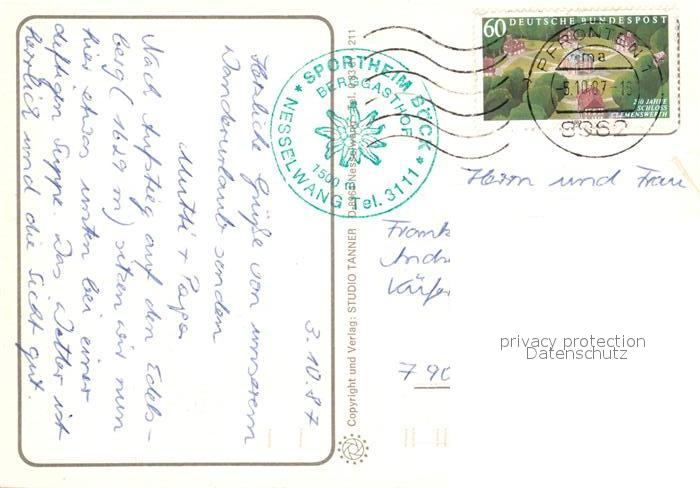 3.10.87
Herzliche Grüße von unserem
Wanderurlaub senden
Mutti + Papa
Nach Aufstieg auf den Edels-
berg (1629 m) sitzen wir nun
hier etwas unten bei einer
deftigen Suppe. Das Wetter ist
herrlich und die Sicht gut.
SPORTHEIM BÖCK
BERGGASTHOF
1500 m
NESSELWANG Tel. 3111
Copyright und Verlag: STUDIO TANNER
Nesselwang
211
60 DEUTSCHE BUNDESPOST
250 JAHRE
SCHLOSS
CLEMENSWERTH
PFRONTEN 1
ma
-6.10.87-18
8962
Herrn und Frau
Frank
7 90
privacy protection
Datenschutz